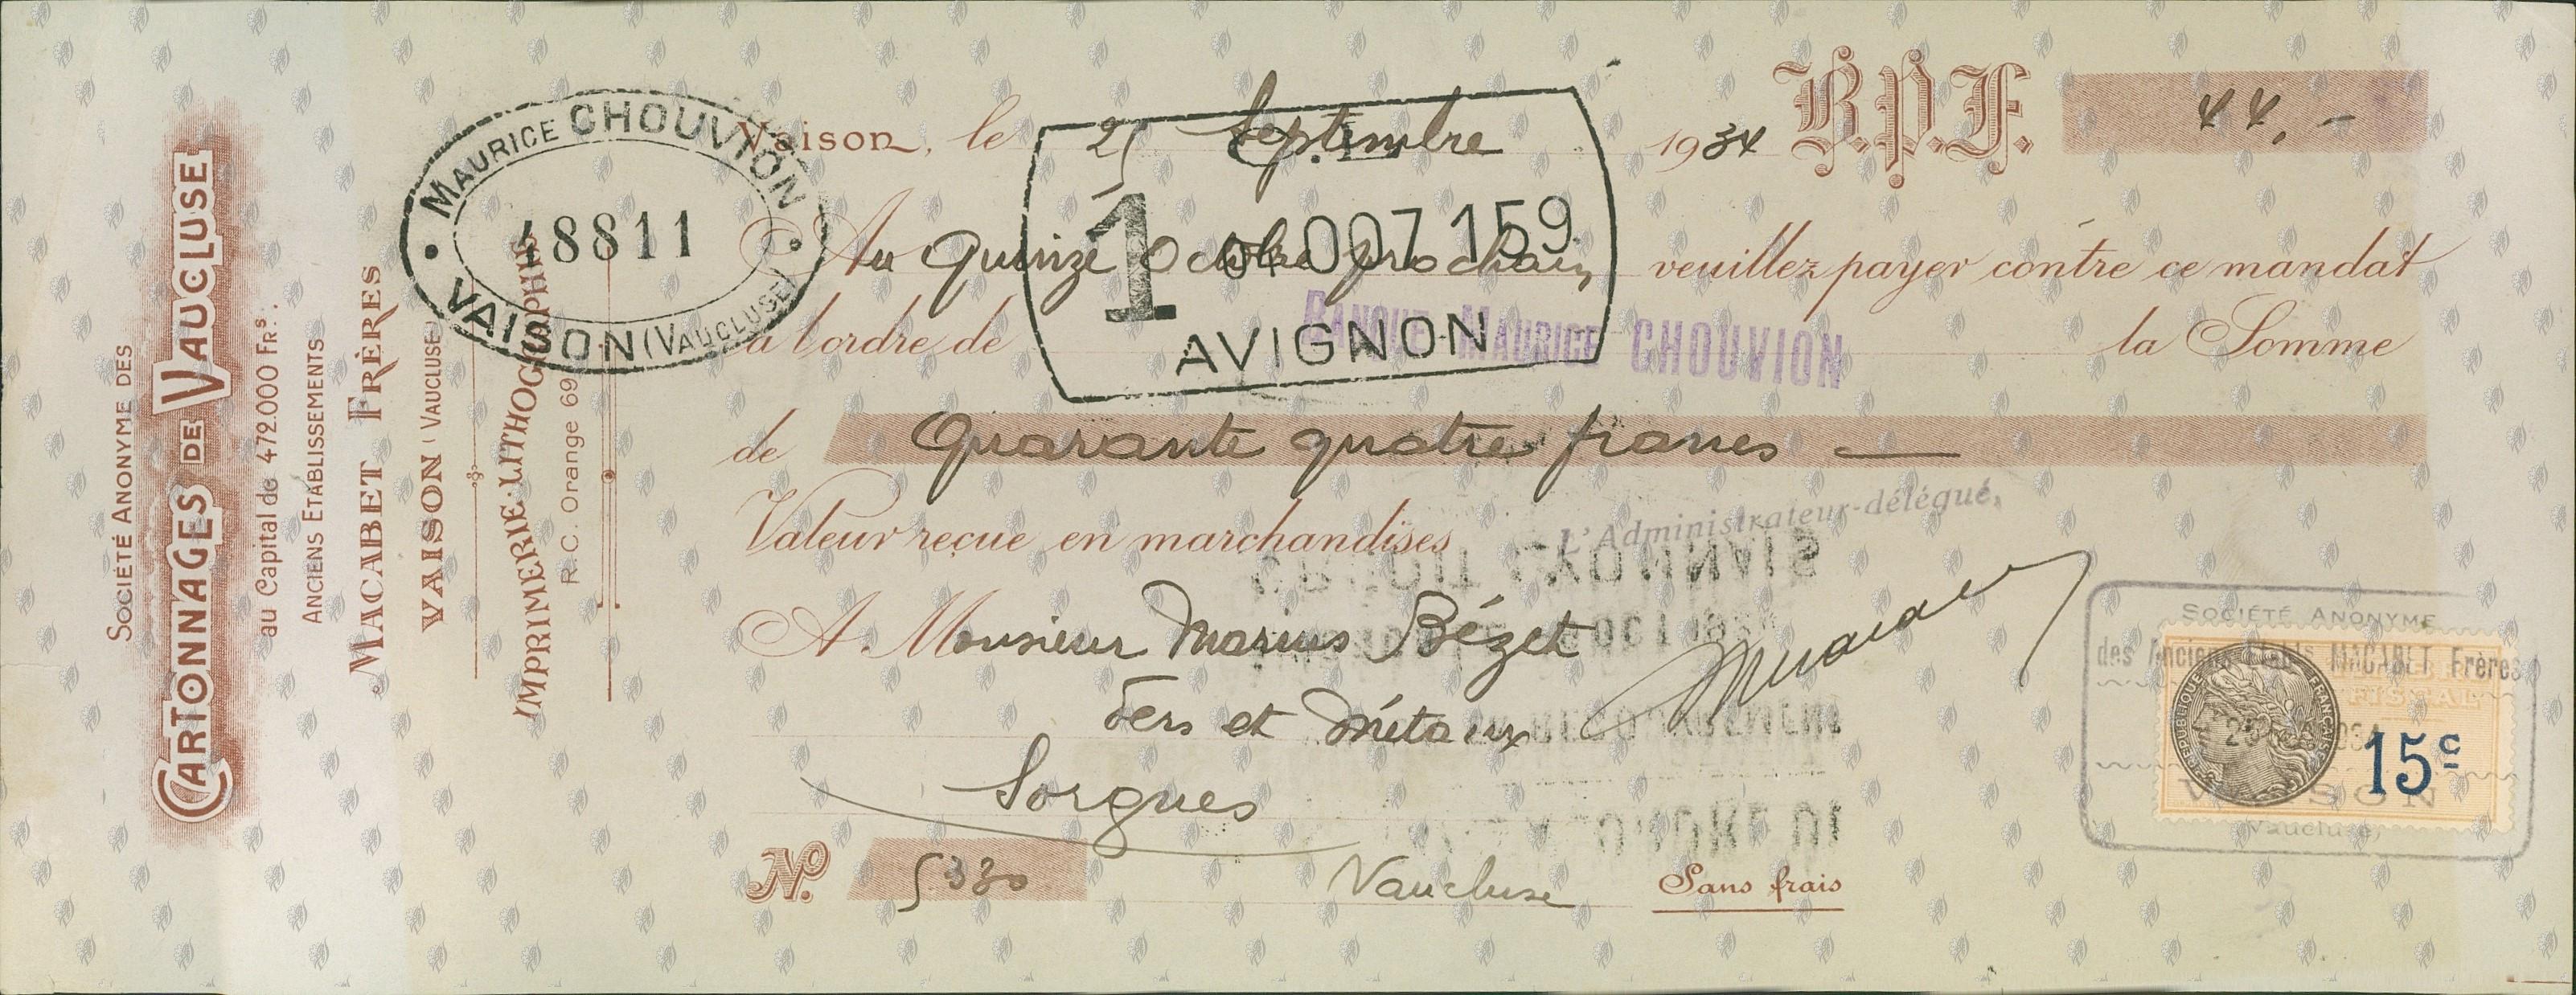 SOCIÉTÉ ANONYME DES
CARTONNAGES DE VAUCLUSE
au Capital de 472.000 Frs.
ANCIENS ETABLISSEMENTS
MACABET FRÈRES
VAISON (VAUCLUSE)
IMPRIMERIE-LITHOGRAPHIE
R.C. Orange 69
MAURICE CHOUVION
48811
VAISON (VAUCLUSE)
Vaison, le 25 Septembre 1934 B.P.F. 44.-
Au Quinze Octobre prochain veuillez payer contre ce mandat
1 007159
AVIGNON
à l'ordre de BANQUE MAURICE CHOUVION la Somme
de Quarante quatre francs —
Valeur reçue en marchandises
L'Administrateur-délégué,
CREDIT LYONNAIS
A Monsieur Marius Bézet
Fers et Métaux
Sorgues
No. 5330 Vaucluse Sans frais
SOCIÉTÉ ANONYME
des Anciens Etabts MACABET Frères
RÉPUBLIQUE FRANÇAISE
FISCAL
15c
VAISON
Vaucluse